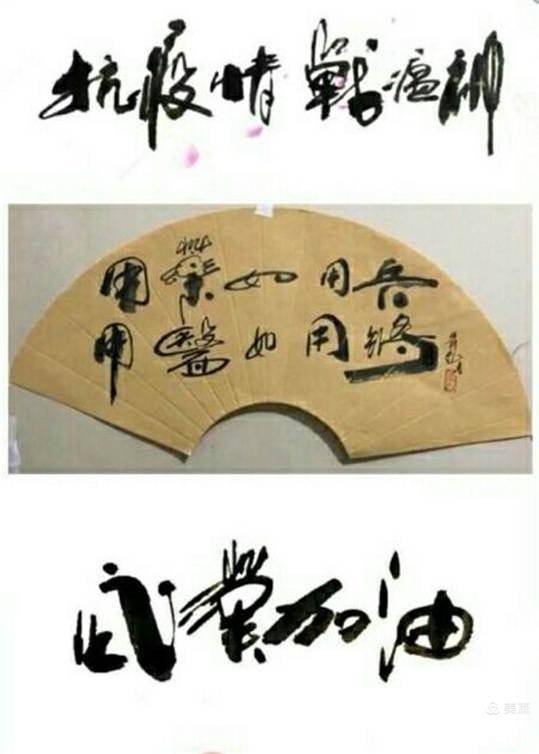 抗疫情 戰瘟神
用藥如用兵
用醫如用將
武漢加油
美篇